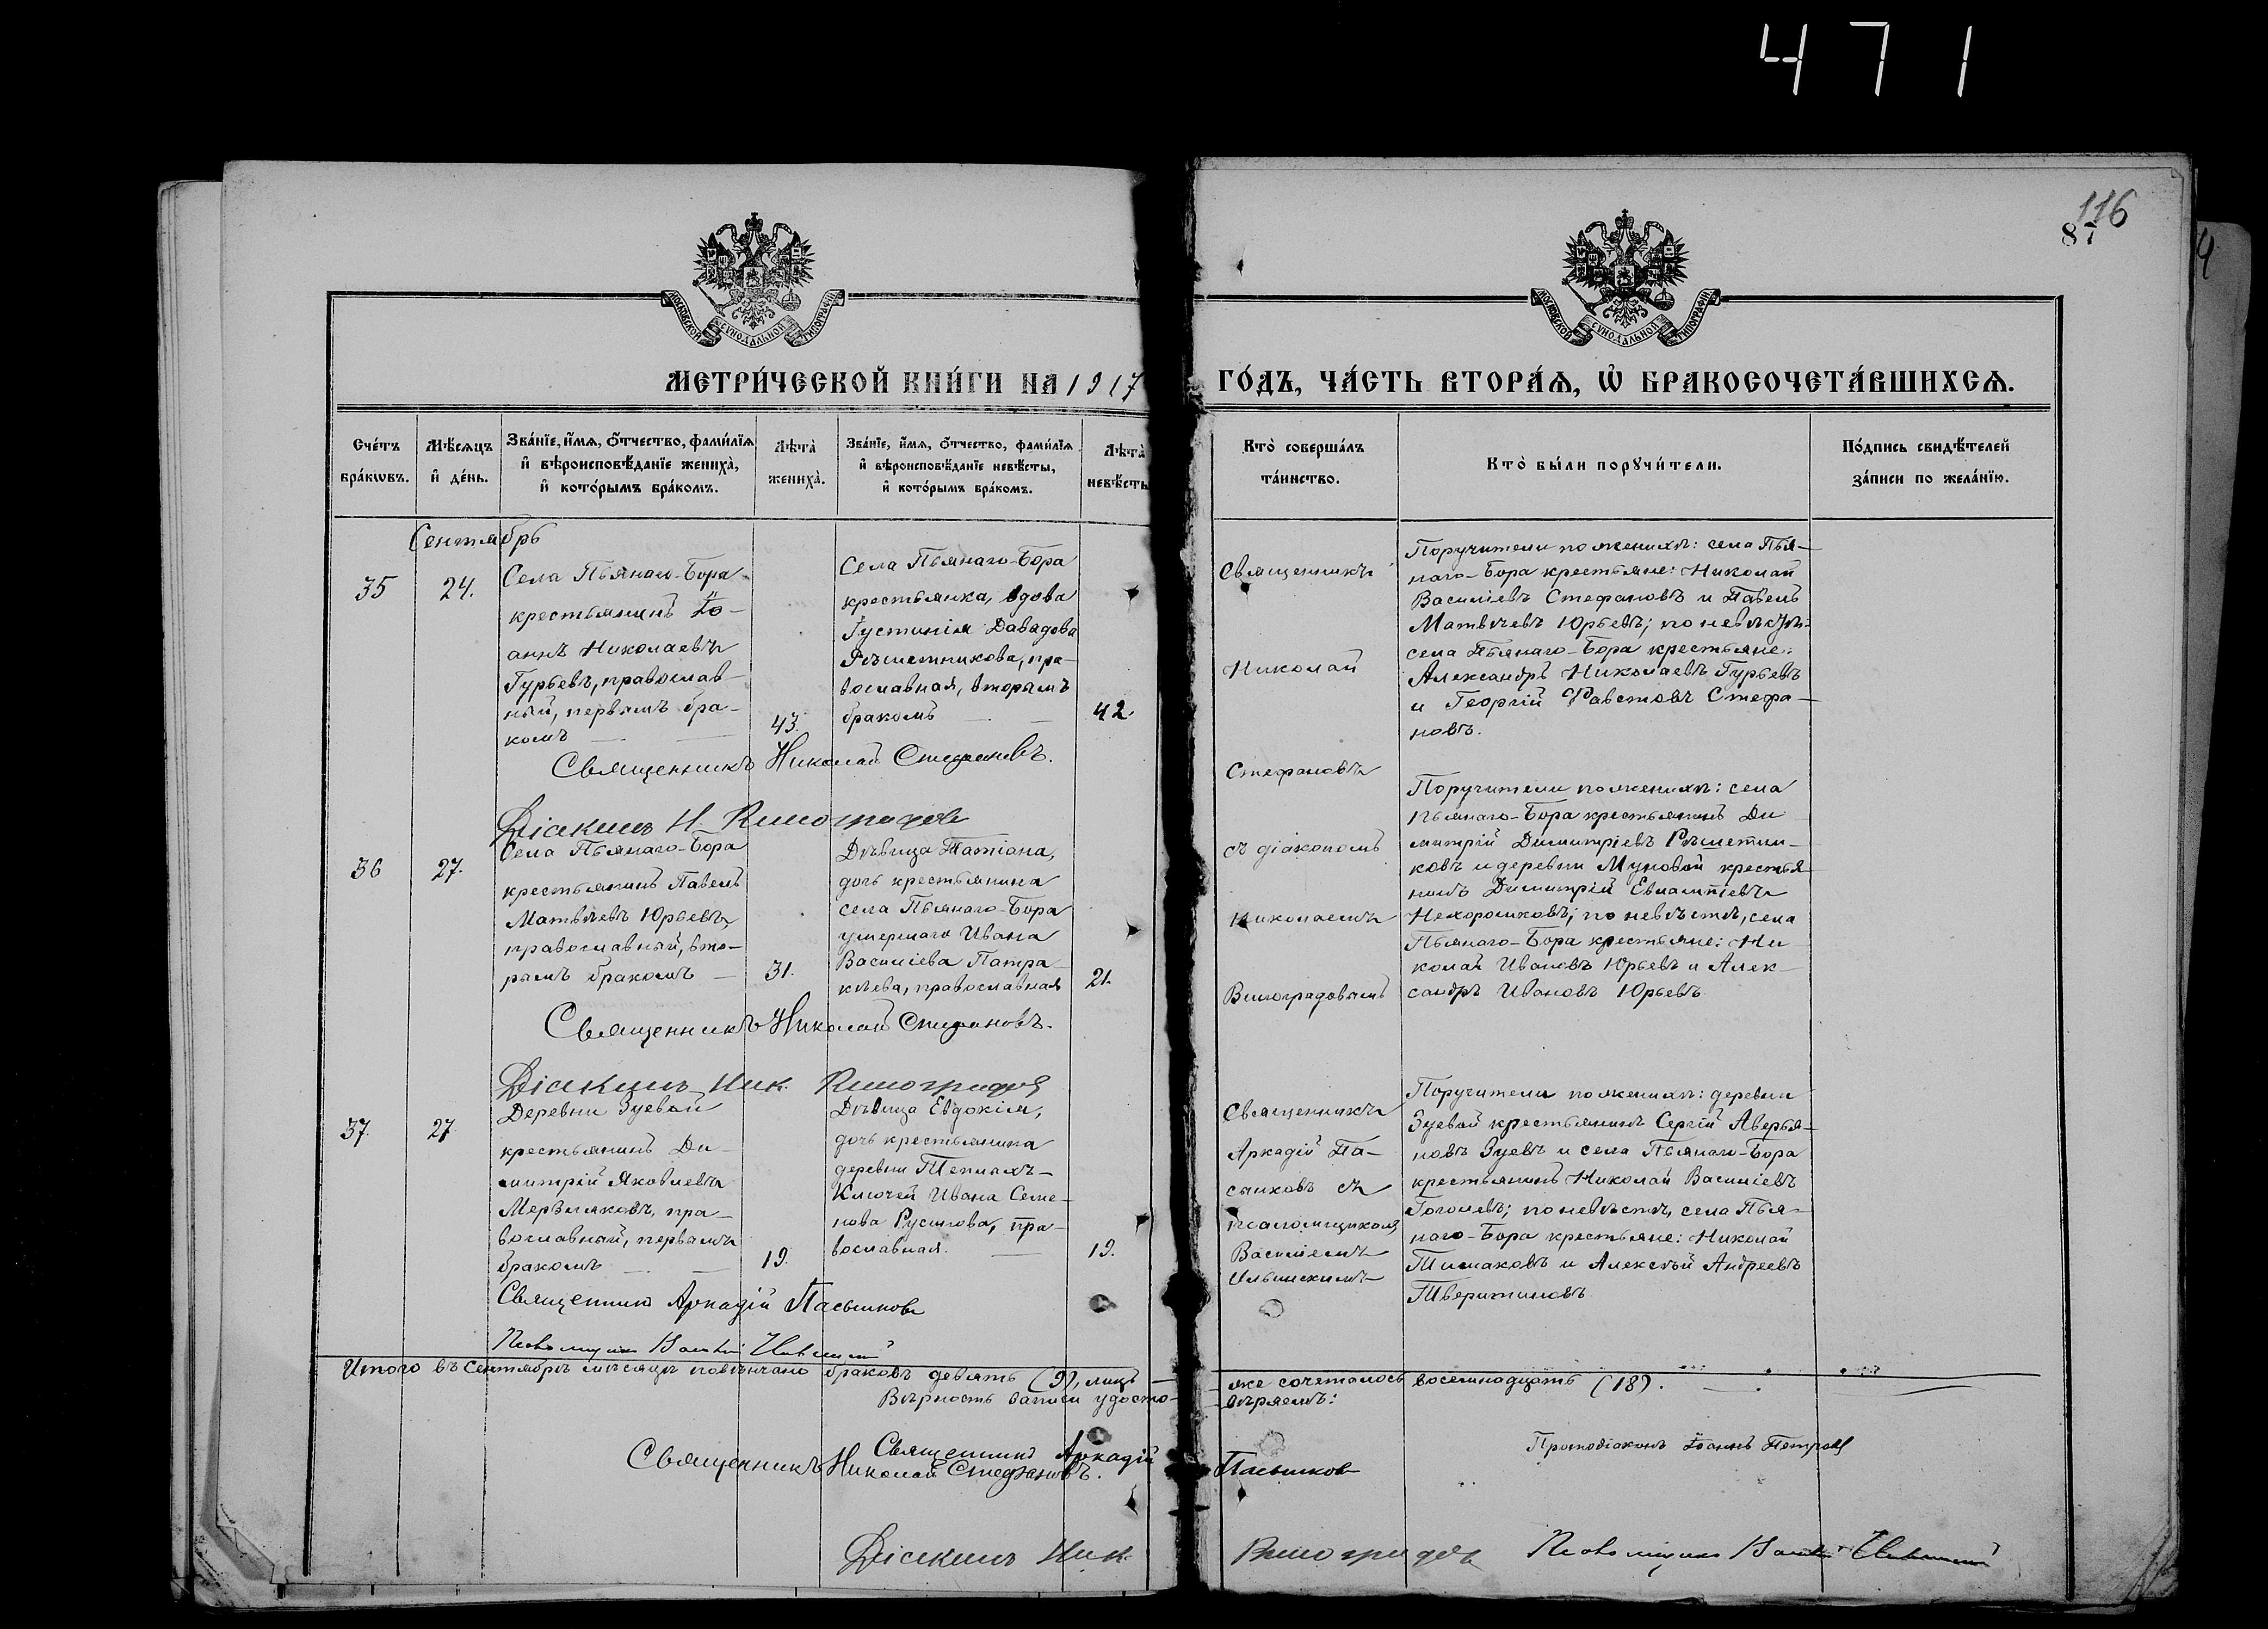 471
116
87
МОСКОВСКОЙ СѴНОДАЛЬНОЙ ТИПОГРАФІИ
МОСКОВСКОЙ СѴНОДАЛЬНОЙ ТИПОГРАФІИ
МЕТРИ́ЧЕСКОЙ КНИ́ГИ НА 1917
ГО́ДЪ, ЧА́СТЬ ВТОРА́Ѧ, Ѡ҆ БРАКОСОЧЕТА́ВШИХСѦ.
Сче́тъ
бра́кѡвъ.
Мѣ́сяцъ
и҆ де́нь.
Зва́нїе, и҆́мя, ѻ҆́тчество, фами́лїя
и҆ вѣроисповѣ́данїе жениха̀,
и҆ кото́рымъ бра́комъ.
Лѣта̀
жениха̀.
Зва́нїе, и҆́мя, ѻ҆́тчество, фами́лїя
и҆ вѣроисповѣ́данїе невѣ́сты,
и҆ кото́рымъ бра́комъ.
Лѣта̀
невѣ́сты
Кто̀ соверша́лъ
та́инство.
Кто̀ бы́ли порꙋчи́тели.
По́дпись свидѣ́телей
за́писи по жела́нїю.
Сентябрь
35
24.
Села Пьянаго-Бора
крестьянинъ Іо-
аннъ Николаевъ
Гурьевъ, православ-
ный, первымъ бра-
комъ
43.
Села Пьянаго-Бора
крестьянка, вдова
Іустинія Давидова
Рѣшетникова, пра-
вославная, вторымъ
бракомъ
42
Священникъ Николай Стефановъ.
Діаконъ Н. Виноградовъ
Священникъ
Николай
Стефановъ
съ діакономъ
Николаемъ
Виноградовымъ
Поручители по женихѣ: села Пья-
наго-Бора крестьяне: Николай
Василіевъ Стефановъ и Павелъ
Матвѣевъ Юрьевъ; по невѣстѣ:
села Пьянаго-Бора крестьяне:
Александръ Николаевъ Гурьевъ
и Георгій Фавстовъ Стефа-
новъ.
36
27.
Села Пьянаго-Бора
крестьянинъ Павелъ
Матвѣевъ Юрьевъ,
православный, вто-
рымъ бракомъ
31.
Дѣвица Татіана,
дочь крестьянина
села Пьянаго-Бора
умершаго Ивана
Василіева Патра-
кѣева, православная
21.
Священникъ Николай Стефановъ.
Діаконъ Ник. Виноградовъ
Поручители по женихѣ: села
Пьянаго-Бора крестьянинъ Ди
митрій Димитріевъ Рѣшетни-
ковъ и деревни Муновой крестья
нинъ Димитрій Евлампіевъ
Нехорошковъ; по невѣстѣ, села
Пьянаго-Бора крестьяне: Ни
колай Ивановъ Юрьевъ и Алек-
сандръ Ивановъ Юрьевъ
37.
27
Деревни Зуевой
крестьянинъ Ди-
митрій Яковлевъ
Мерзляковъ, пра-
вославный, первымъ
бракомъ
19.
Дѣвица Евдокія,
дочь крестьянина
деревни Теплыхъ-
Ключей Ивана Семе-
нова Русинова, пра-
вославная.
19.
Священникъ Аркадій Пасынковъ
Псаломщикъ Василій Ильинскій
Священникъ
Аркадій Па-
сынковъ съ
псаломщикомъ
Василіемъ
Ильинскимъ
Поручители по женихѣ: деревни
Зуевой крестьянинъ Сергій Аверья-
новъ Зуевъ и села Пьянаго-Бора
крестьянинъ Николай Василіевъ
Гоголевъ; по невѣстѣ, села Пья-
наго-Бора крестьяне: Николай
Тимаковъ и Алексѣй Андреевъ
Тверитиновъ
Итого въ Сентябрѣ мѣсяцѣ повѣнчано браковъ девять (9), лицъ -
же сочеталось восемнадцать (18).
Вѣрность записи удосто-
вѣряемъ:
Священникъ Аркадій Пасынковъ
Священникъ Николай Стефановъ.
Протодіаконъ Іоаннъ Петровъ
Діаконъ Ник. Виноградовъ
Псаломщикъ Василій Ильинскій